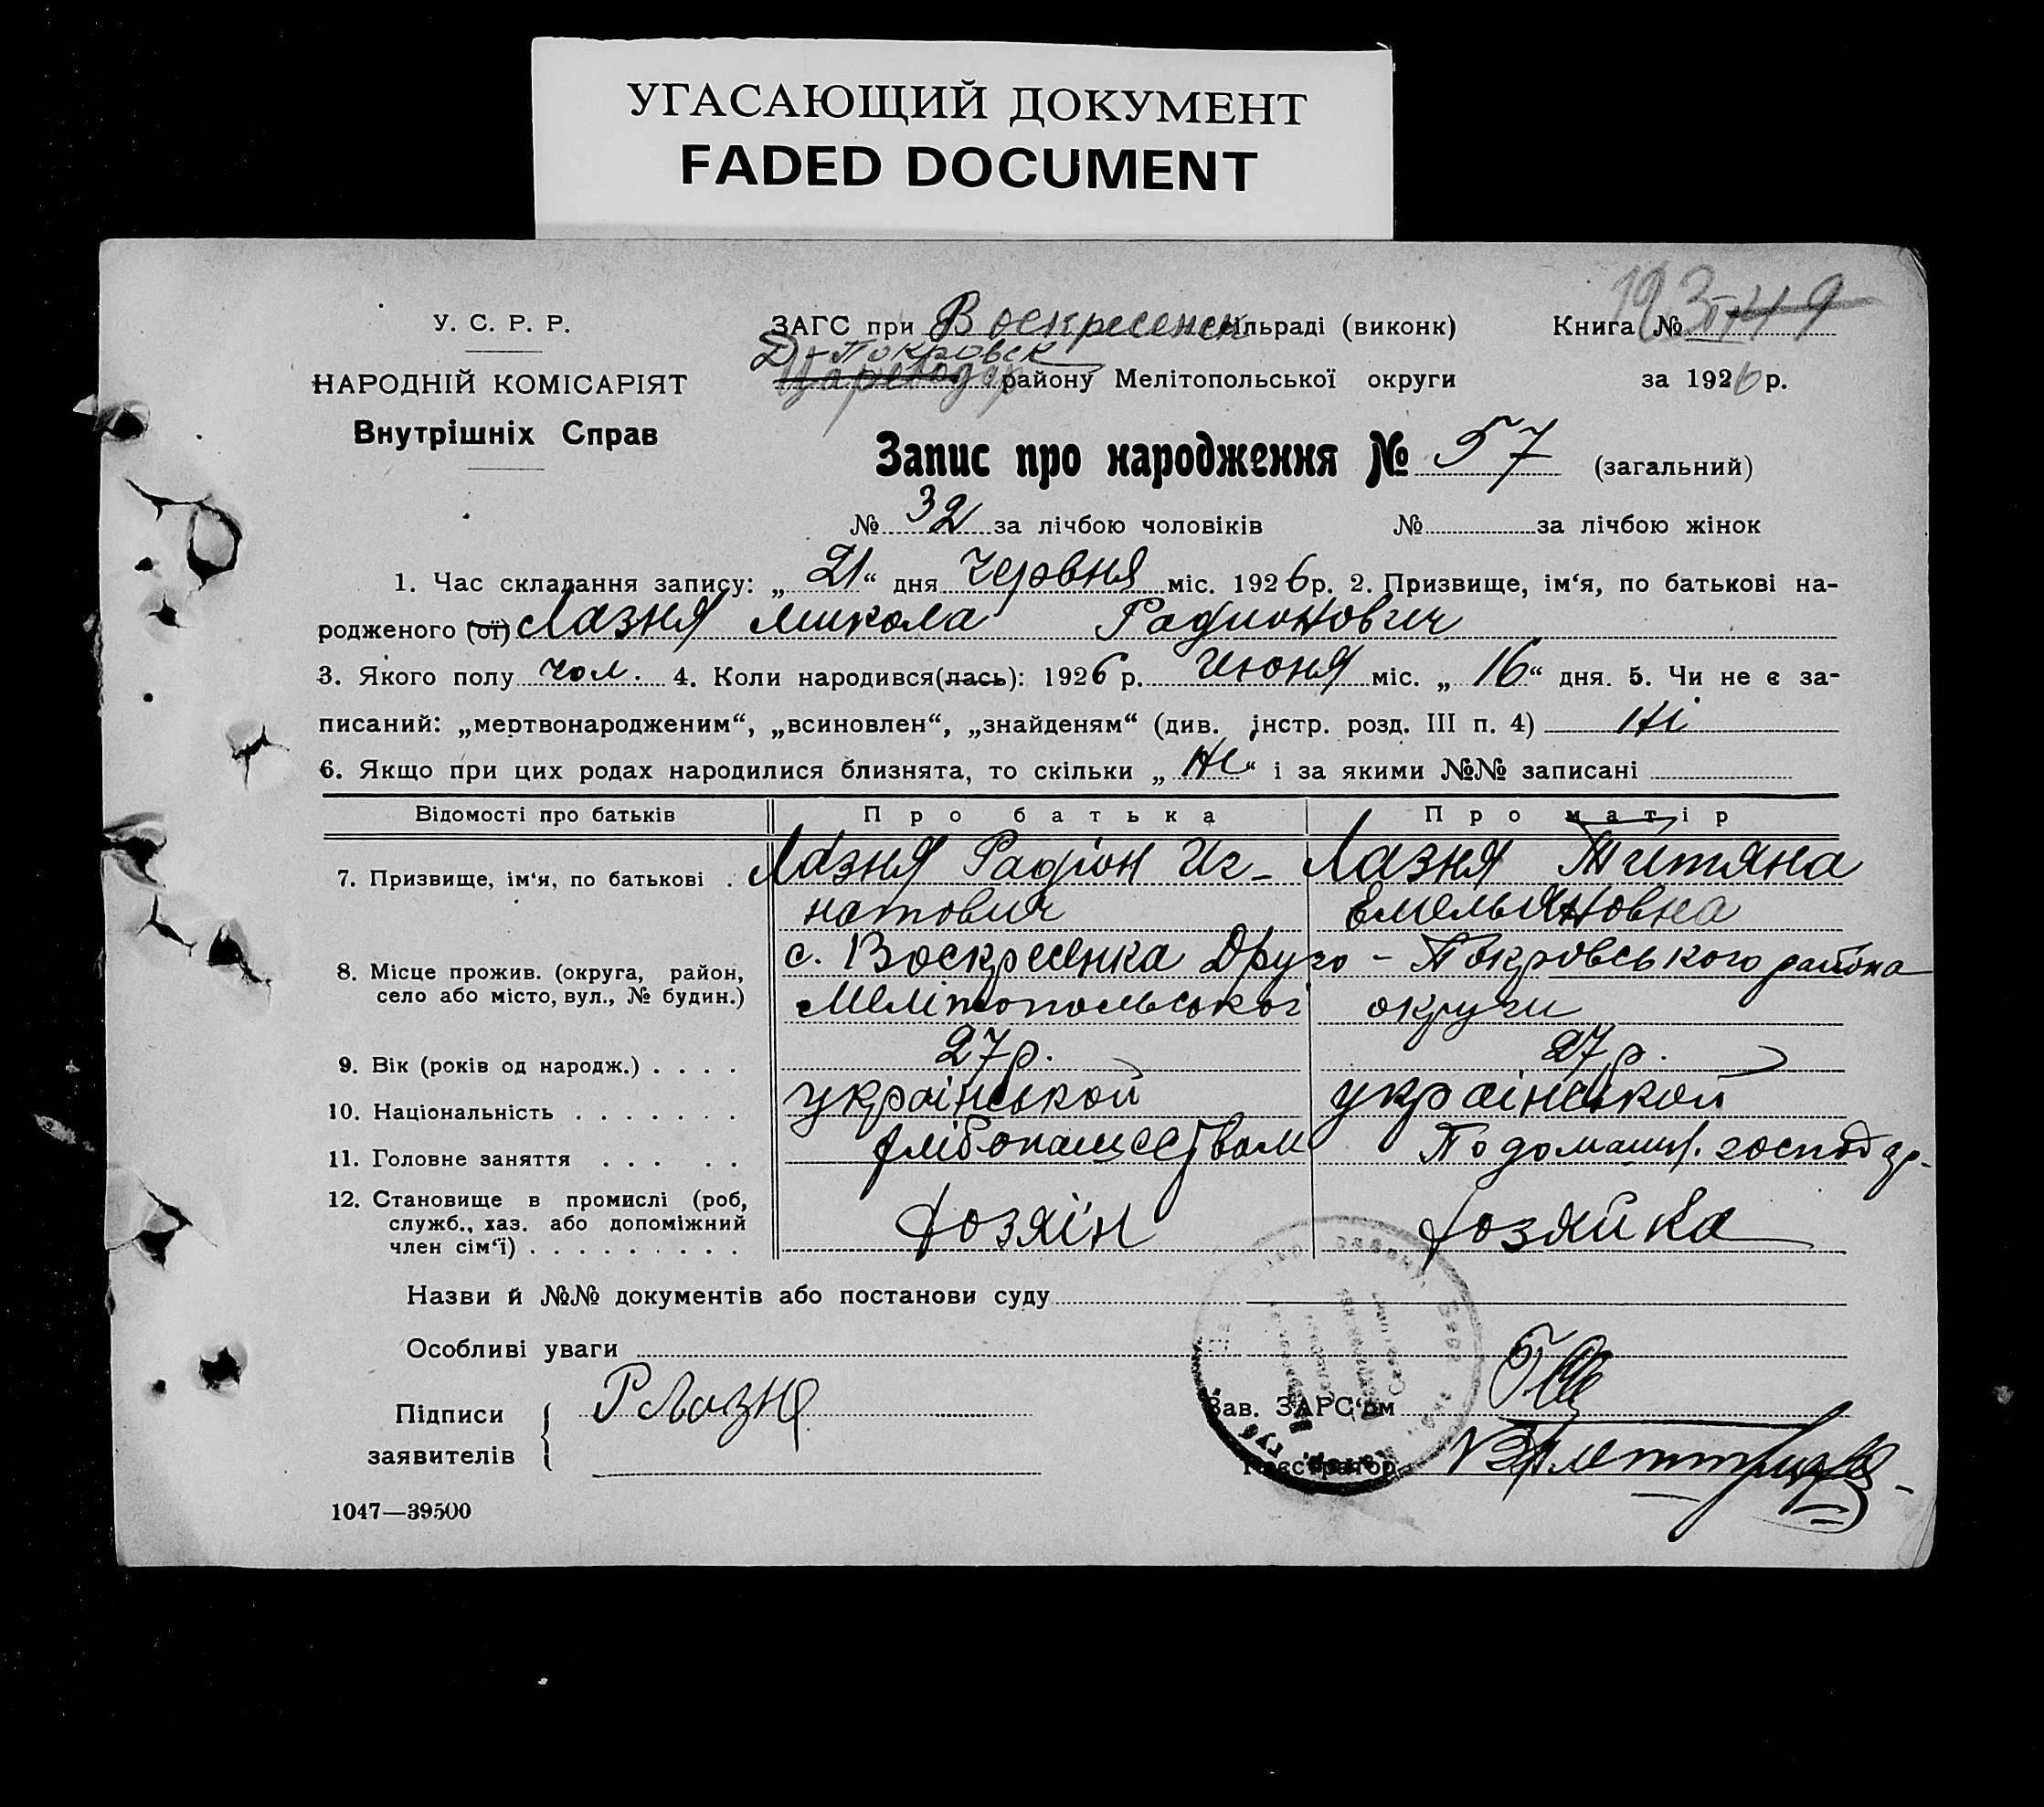 УГАСАЮЩИЙ ДОКУМЕНТ
FADED DOCUMENT
У. С. Р. Р.
НАРОДНІЙ КОМІСАРІЯТ
Внутрішніх Справ
ЗАГС при Воскресенск сільраді (виконк)
Д-Покровск
району Мелітопольської округи
Книга №
за 1926 р.
Запис про народження № 57 (загальний)
№ 32 за лічбою чоловіків № за лічбою жінок
1. Час складання запису: „21“ дня Червня міс. 1926 р. 2. Призвище, ім‘я, по батькові на-
родженого (ої) Лазня Микола Радионович
3. Якого полу чол. 4. Коли народився(лась): 1926 р. Июня міс. „16“ дня. 5. Чи не є за-
писаний: „мертвонародженим“, „всиновлен“, „знайденям“ (див. інстр. розд. III п. 4) Ні
6. Якщо при цих родах народилися близнята, то скільки „Не“ і за якими №№ записані
Відомості про батьків Про батька Про матір
7. Призвище, ім‘я, по батькові . Лазня Радіон Иг- Лазня Титяна
натович Емельяновна
8. Місце прожив. (округа, район, с. Воскресенка Друго - Покровського района
село або місто, вул., № будин.) Мелітопольськоі округи
9. Вік (років од народж.) . . . . 27 р. 27 р.
10. Національність . . . . . . . українськой українськой
11. Головне заняття . . . . . хлібопашеством По домашн. господар.
12. Становище в промислі (роб,
служб., хаз. або допоміжний Хозяін Хозяйка
член сім‘ї) . . . . . . . . .
Назви й №№ документів або постанови суду
Особливі уваги
Підписи Р Лазня Зав. ЗАРС‘ом
заявителів Реєстратор
1047—39500